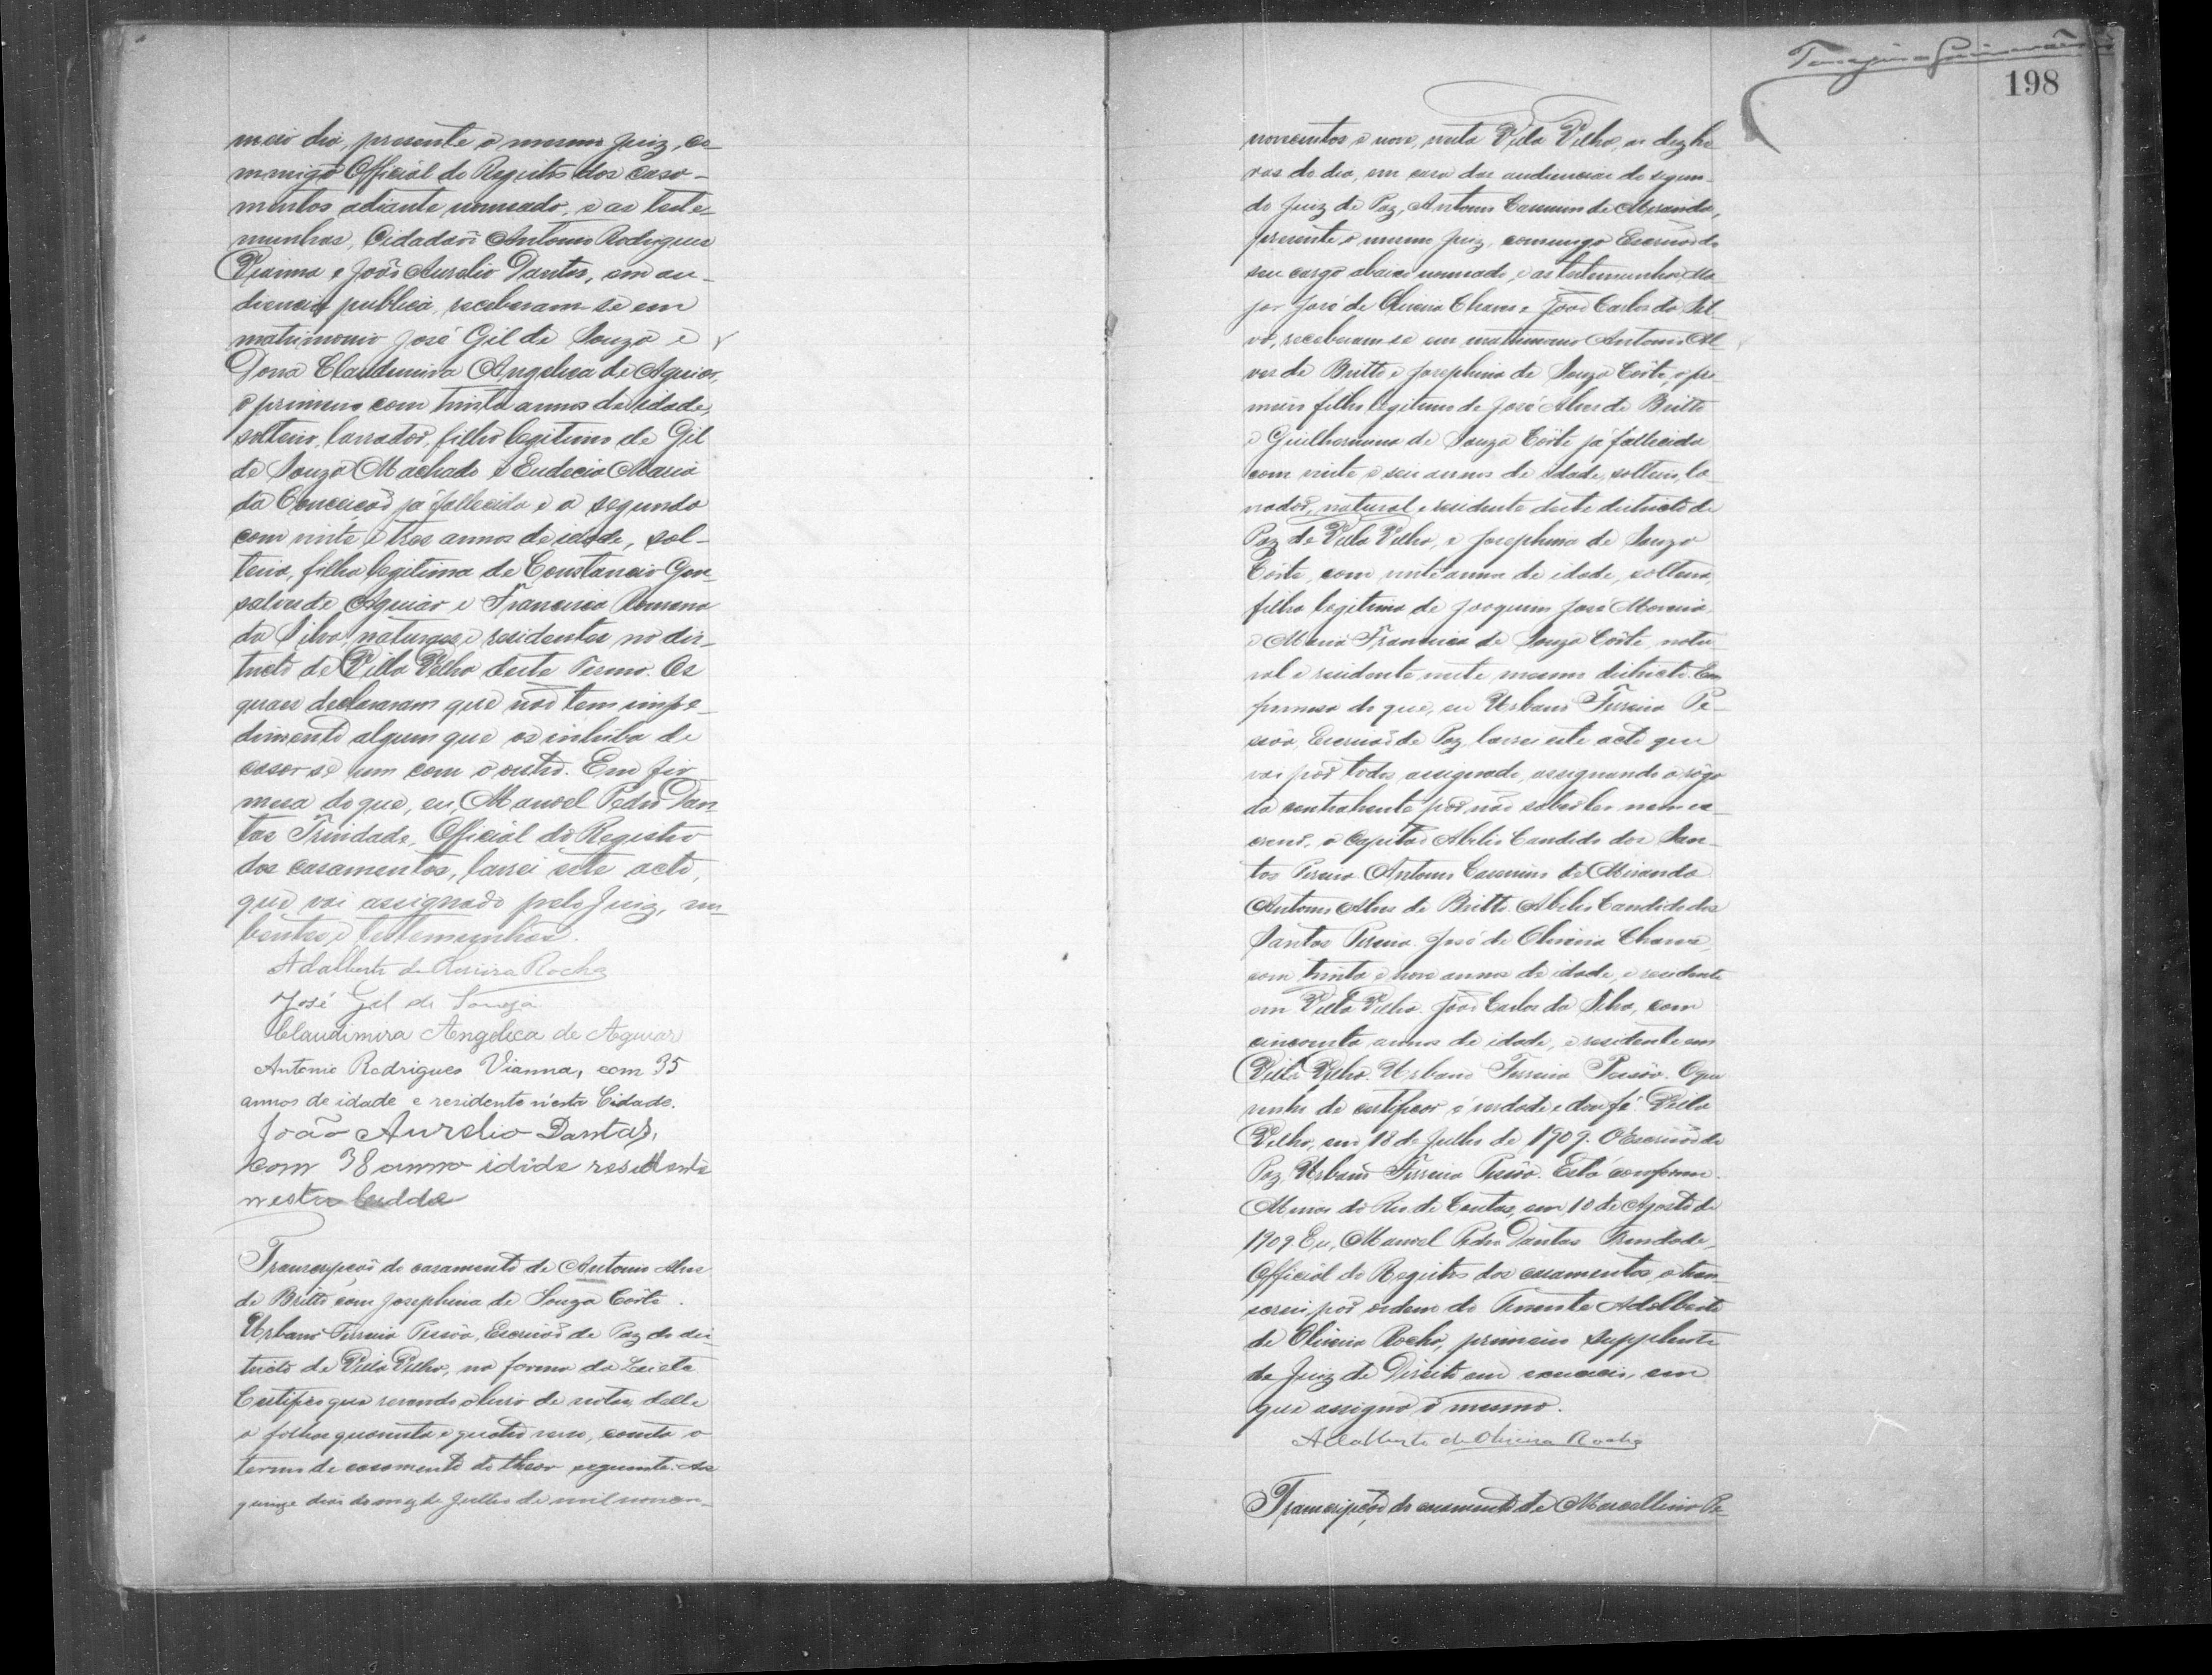 meio dia, presente o mesmo Juiz, co-
mmigo Official do Registro dos casa-
mentos adiante nomeado, e as teste-
munhas, Cidadãos Antonio Rodrigues
Vianna e João Aurelio Dantas, em au-
diencia publica, receberam-se em
matrimonio José Gil de Souza e
Dona Claudimira Angelica de Aguiar,
o primeiro com trinta annos de idade,
solteiro, lavrador, filho legitimo de Gil
de Souza Machado e Eudocia Maria
da Conceição já fallecida e a segunda
com vinte e tres annos de idade, sol-
teira, filha legitima de Constancio Gon-
salves de Aguiar e Francisca Romana
da Silva, naturaes e residentes no dis-
tricto de Villa Velha deste Termo. Os
quaes declararam que não tem impe-
dimento algum que os inhiba de
casar-se um com o outro. Em fir-
mesa do que, eu, Manoel Pedro Dan-
tas Trindade, Official do Registro
dos casamentos, lavrei este acto,
que vai assignado pelo Juiz, nu-
bentes e testemunhas.
Adalberto de Oliveira Rocha
José Gil de Souza
Claudimira Angelica de Aguiar
Antonio Rodrigues Vianna, com 35
annos de idade e residente n'esta Cidade.
João Aurelio Dantas,
com 38 anno idide residente
nesta Cidda
Transcripção do casamento de Antonio Alves
de Britto com Josephina de Souza Côrte.
Urbano Ferreira Pessôa, Escrivão de Paz do dis
tricto de Villa Velha, na forma da Lei etc
Certifico que revendo o livro de notas delle
a folhas quarenta e quatro verso, consta o
termo de casamento do theor seguinte. Aos
quinze dias do mez de Julho de mil noven-
Guimarães
198
novecentos e nove, nesta Villa Velha, as dez ho
ras do dia, em casa das audiencias do segun-
do Juiz de Paz, Antonio Cassimiro de Miranda,
presente o mesmo Juiz, commigo Escrivão do
seu cargo abaixo nomeado, e as testemunhas, Ma
jor José de Oliveira Chaves e João Carlos da Sil
va, receberam-se em matrimonio Antonio Al
ves de Britto e Josephina de Souza Côrte, o pri
meiro filho legitimo de José Alves de Britto
e Guilhermina de Souza Côrte já fallecida
com vinte e seis annos de idade, solteiro, la
vrador, natural e residente deste districto de
Paz de Villa Velha, e Josephina de Souza
Côrte, com vinte annos de idade, solteira,
filha legitima de Joaquim José Moreira
e Maria Francisca de Souza Côrte, natu
ral e residente neste mesmo districto. Em
firmesa do que, eu Urbano Ferreira Pe-
ssôa, Escrivão de Paz, lavrei este acto que
vai por todos assignado, assignando a rôgo
da contrahente por não saber ler nem es-
crever, o Capitão Abilio Candido dos San-
tos Pereira. Antonio Cassimiro de Miranda
Antonio Alves de Britto. Abilio Candido dos
Santos Pereira. José de Oliveira Chaves
com trinta e nove annos de idade, e residente
em Villa Velha. João Carlos da Silva, com
cincoenta annos de idade, e residente em
Villa Velha. Urbano Ferreira Pessôa. O que
venho de certificar é verdade e dou fé. Villa
Velha, em 18 de Julho de 1909. O Escrivão de
Paz, Urbano Ferreira Pessôa. Está conforme.
Minas do Rio de Contas, em 10 de Agosto de
1909. Eu, Manoel Pedro Dantas Trindade,
Official do Registro dos casamentos, o tran
screvi por ordem do Tenente Adalberto
de Oliveira Rocha, primeiro supplente
do Juiz de Direito em exercicio, em
que assigna o mesmo.
Adalberto de Oliveira Rocha
Transcripção do casamento de Marcellino Pe-